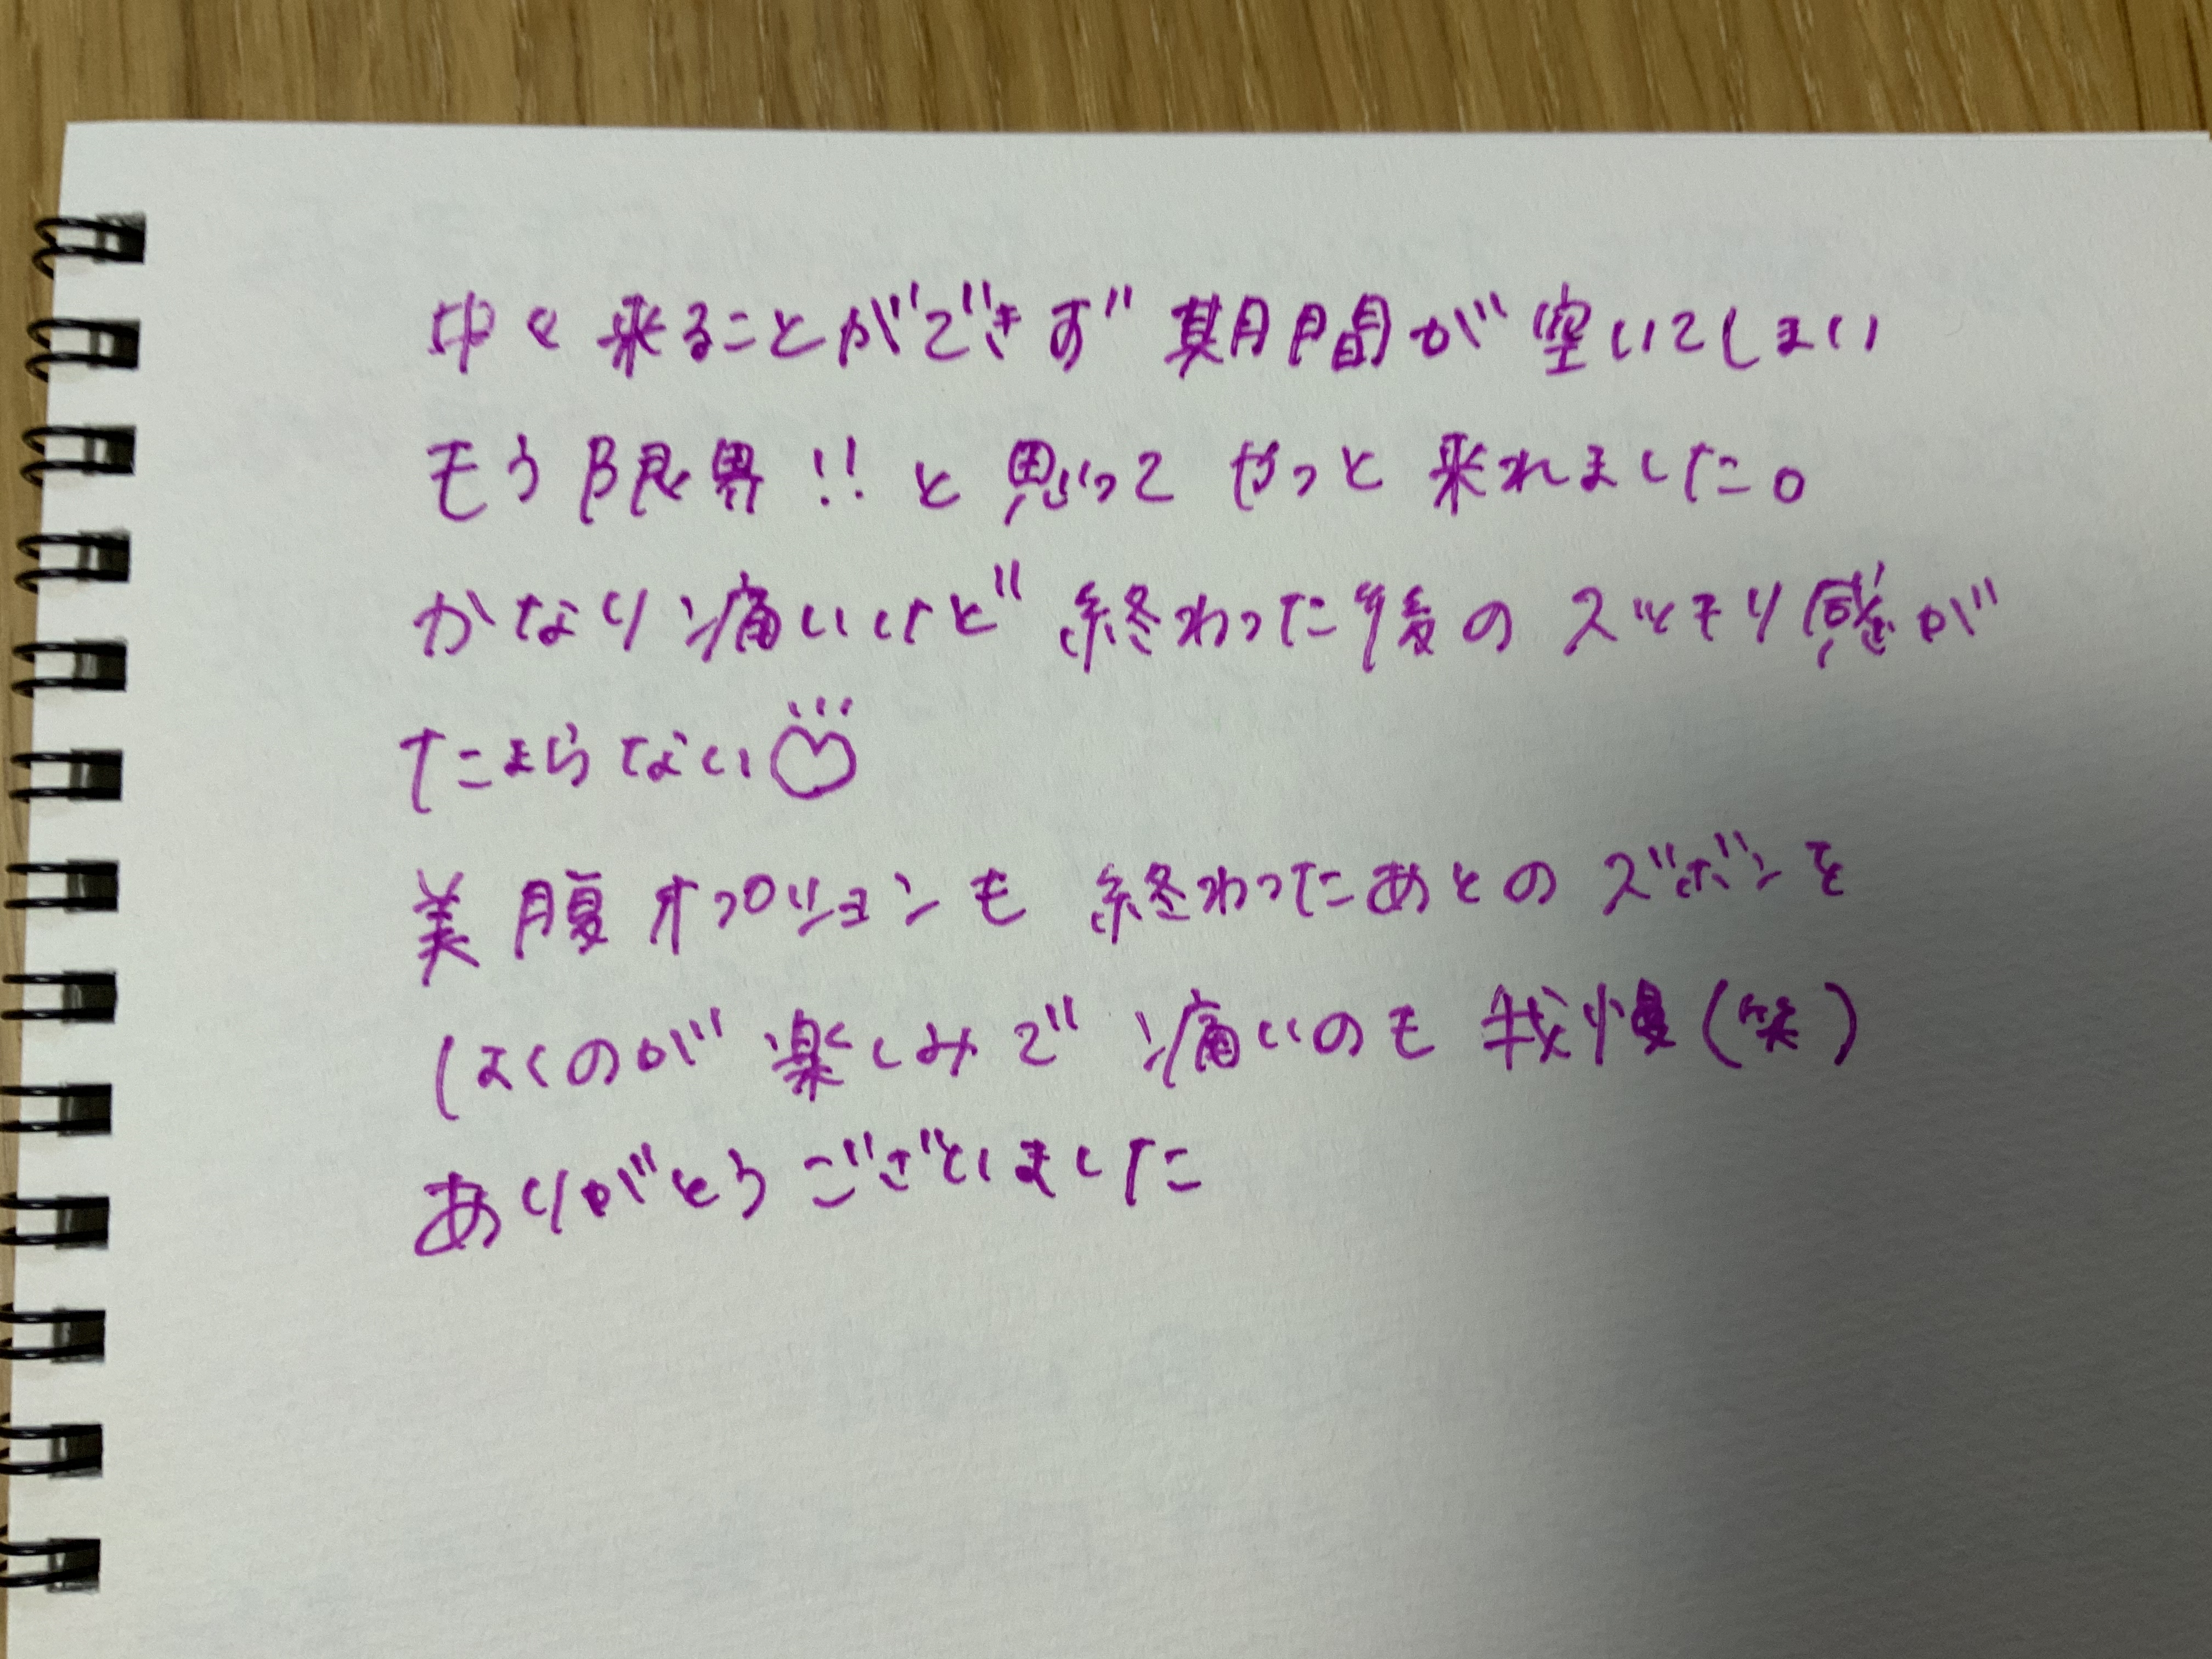 中々来ることができず期間が空いてしまい
もう限界!!と思ってやっと来れました。
かなり痛いけど終わった後のスッキリ感が
たまらない♡
美腹オプションも終わったあとのズボンを
はくのが楽しみで痛いのも我慢(笑)
ありがとうございました